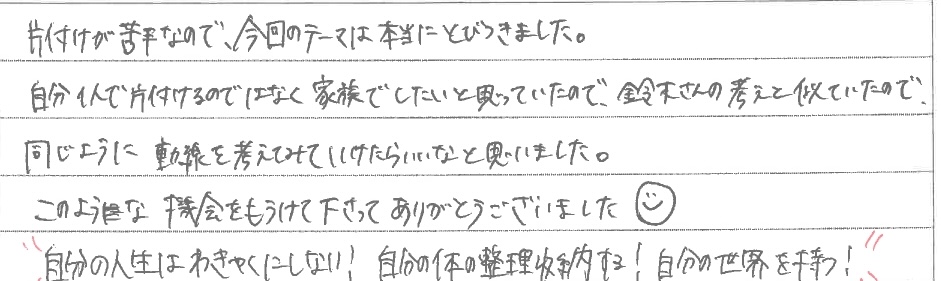 片付けが苦手なので、今回のテーマは本当にとびつきました。
自分1人で片付けるのではなく家族でしたいと思っていたので、鈴木さんの考えと似ていたので、
同じように動線を考えてみていけたらいいなと思いました。
このような機会をもうけて下さってありがとうございました
自分の人生はわきやくにしない! 自分の体の整理収納する! 自分の世界を持つ!